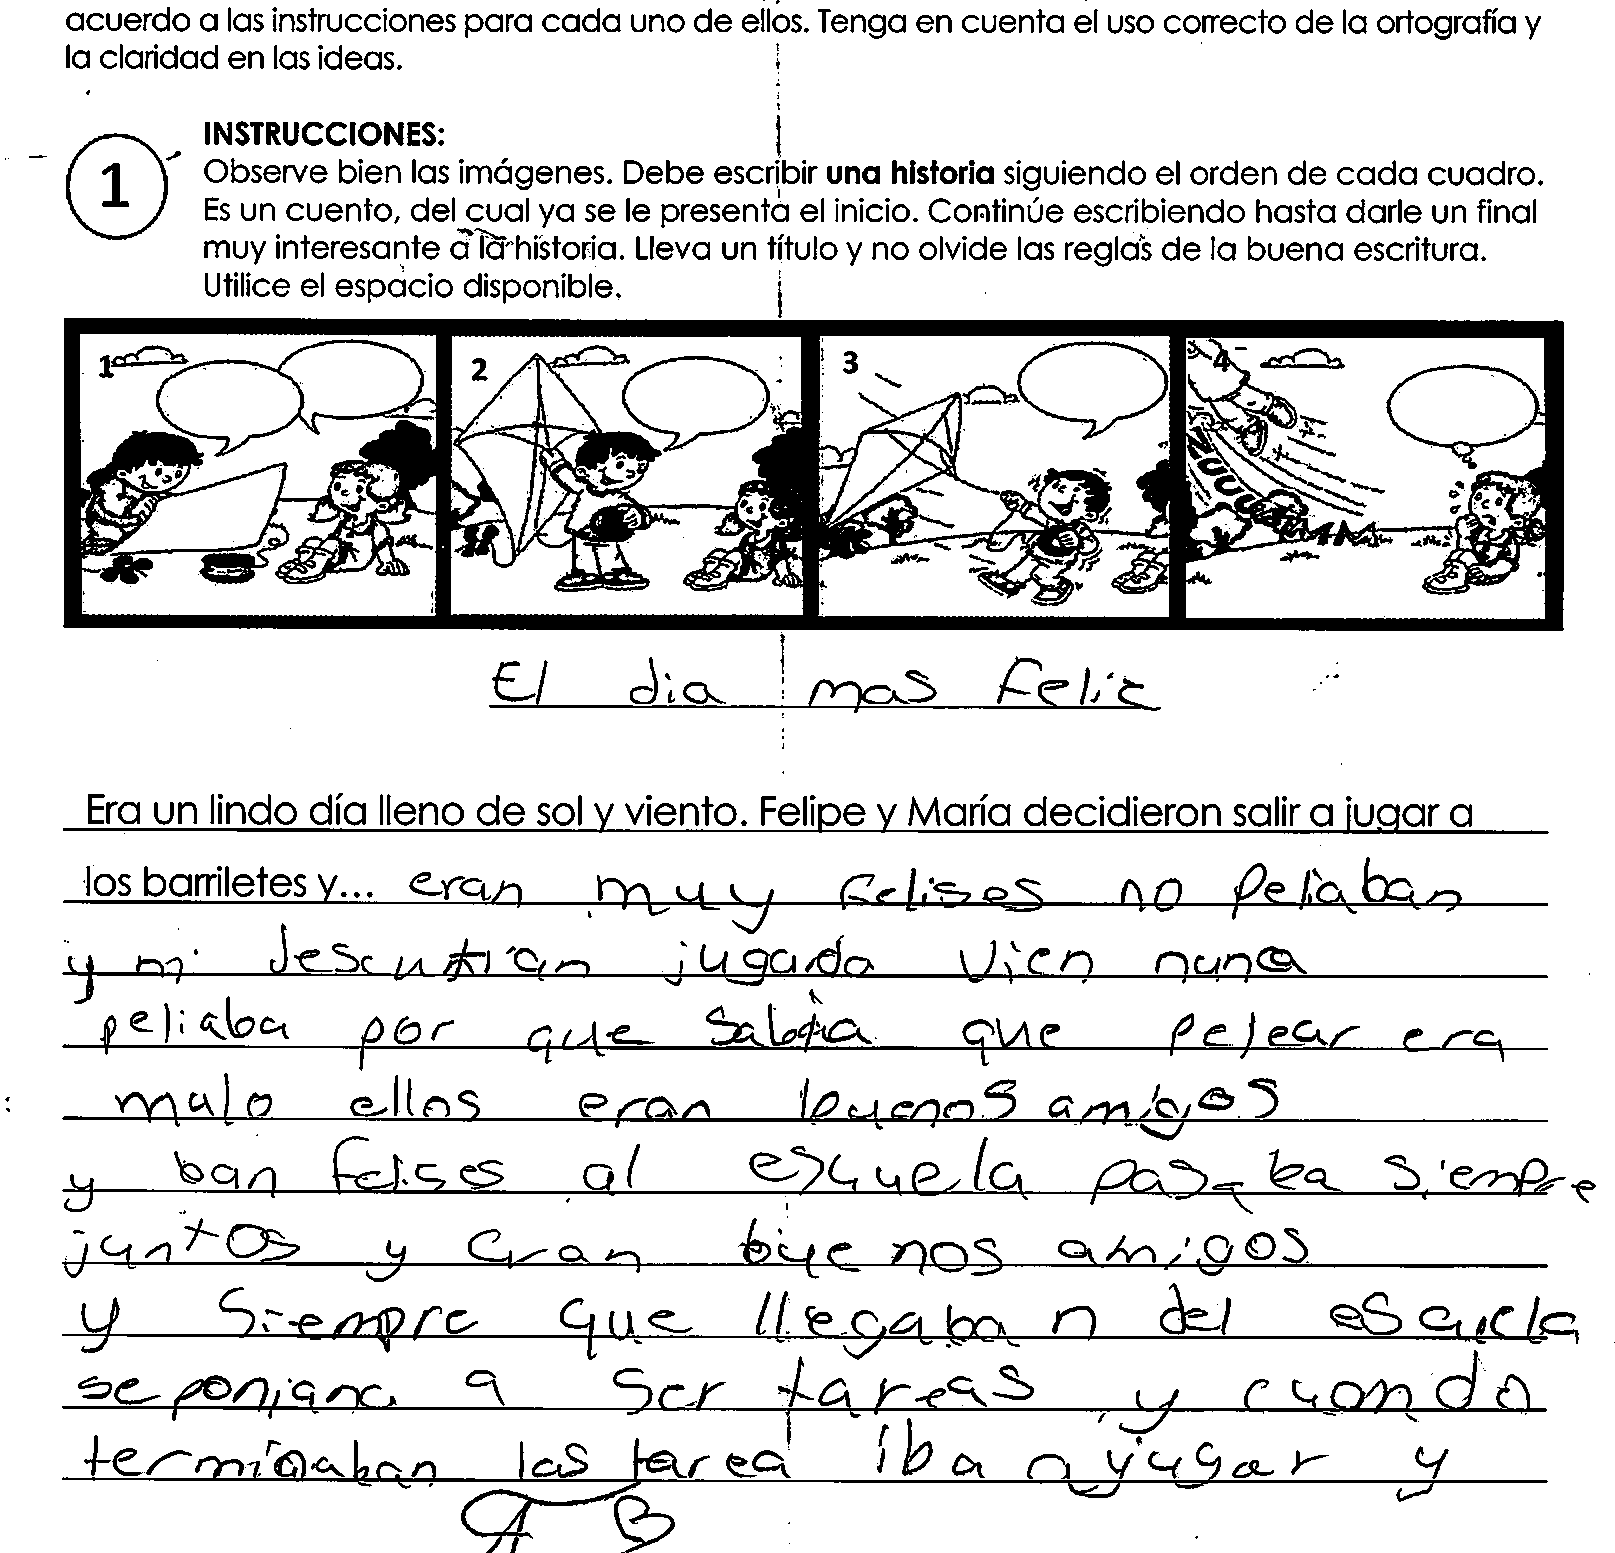 acuerdo a las instrucciones para cada uno de ellos. Tenga en cuenta el uso correcto de la ortografía y
la claridad en las ideas.
1
INSTRUCCIONES:
Observe bien las imágenes. Debe escribir una historia siguiendo el orden de cada cuadro.
Es un cuento, del cual ya se le presenta el inicio. Continúe escribiendo hasta darle un final
muy interesante a la historia. Lleva un título y no olvide las reglas de la buena escritura.
Utilice el espacio disponible.
1 2 3 4
El dia mas Feliz
Era un lindo día lleno de sol y viento. Felipe y María decidieron salir a jugar a
los barriletes y... eran muy Felises no peliaban
y ni descutian jugada vien nunca
peliaba por que Sabia que pelear era
malo ellos eran buenos amigos
y ban felises al escuela pasaba siempre
juntos y eran buenos amigos
y Siempre que llegaban del escuela
se poniana a Ser tareas y cuando
terminaban las tarea iba a yugar y
A B